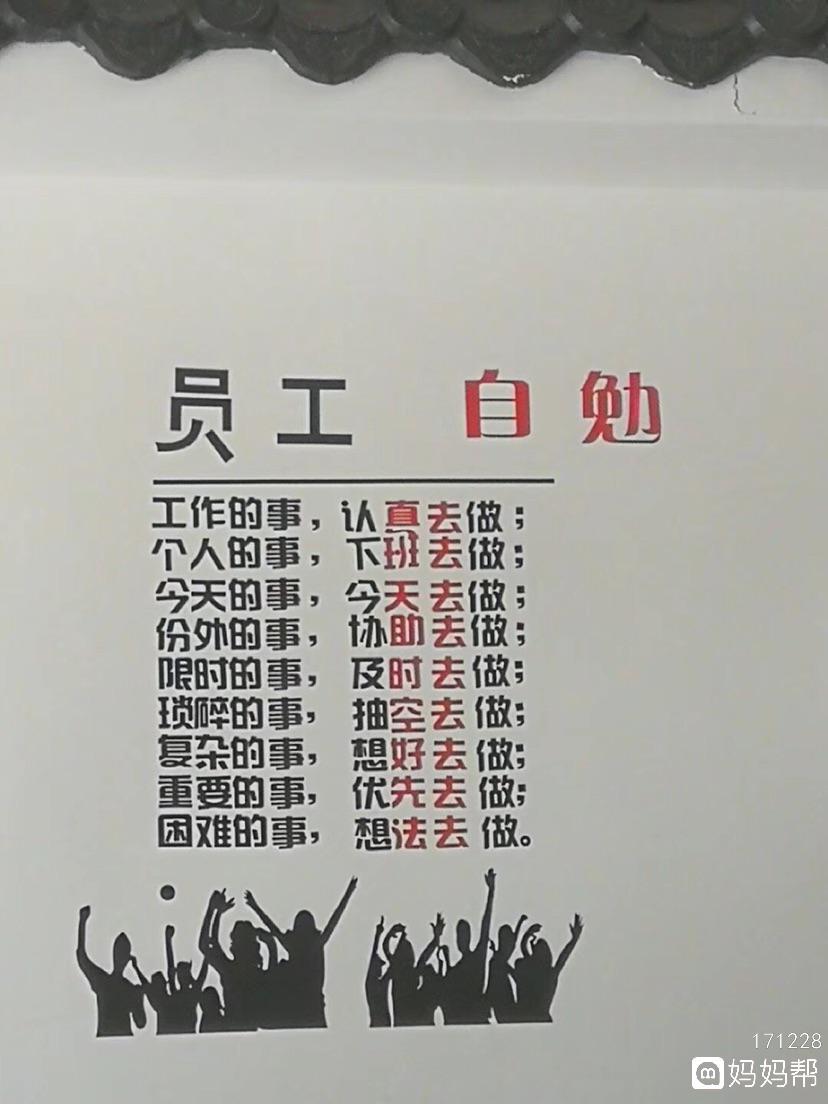 员工 自勉
工作的事，认真去做；
个人的事，下班去做；
今天的事，今天去做；
份外的事，协助去做；
限时的事，及时去做；
琐碎的事，抽空去做；
复杂的事，想好去做；
重要的事，优先去做；
困难的事，想法去做。
171228
妈妈帮